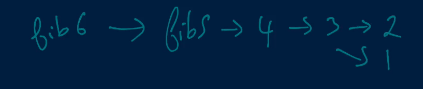 fib6 → fib5 → 4 → 3 → 2
↘ 1